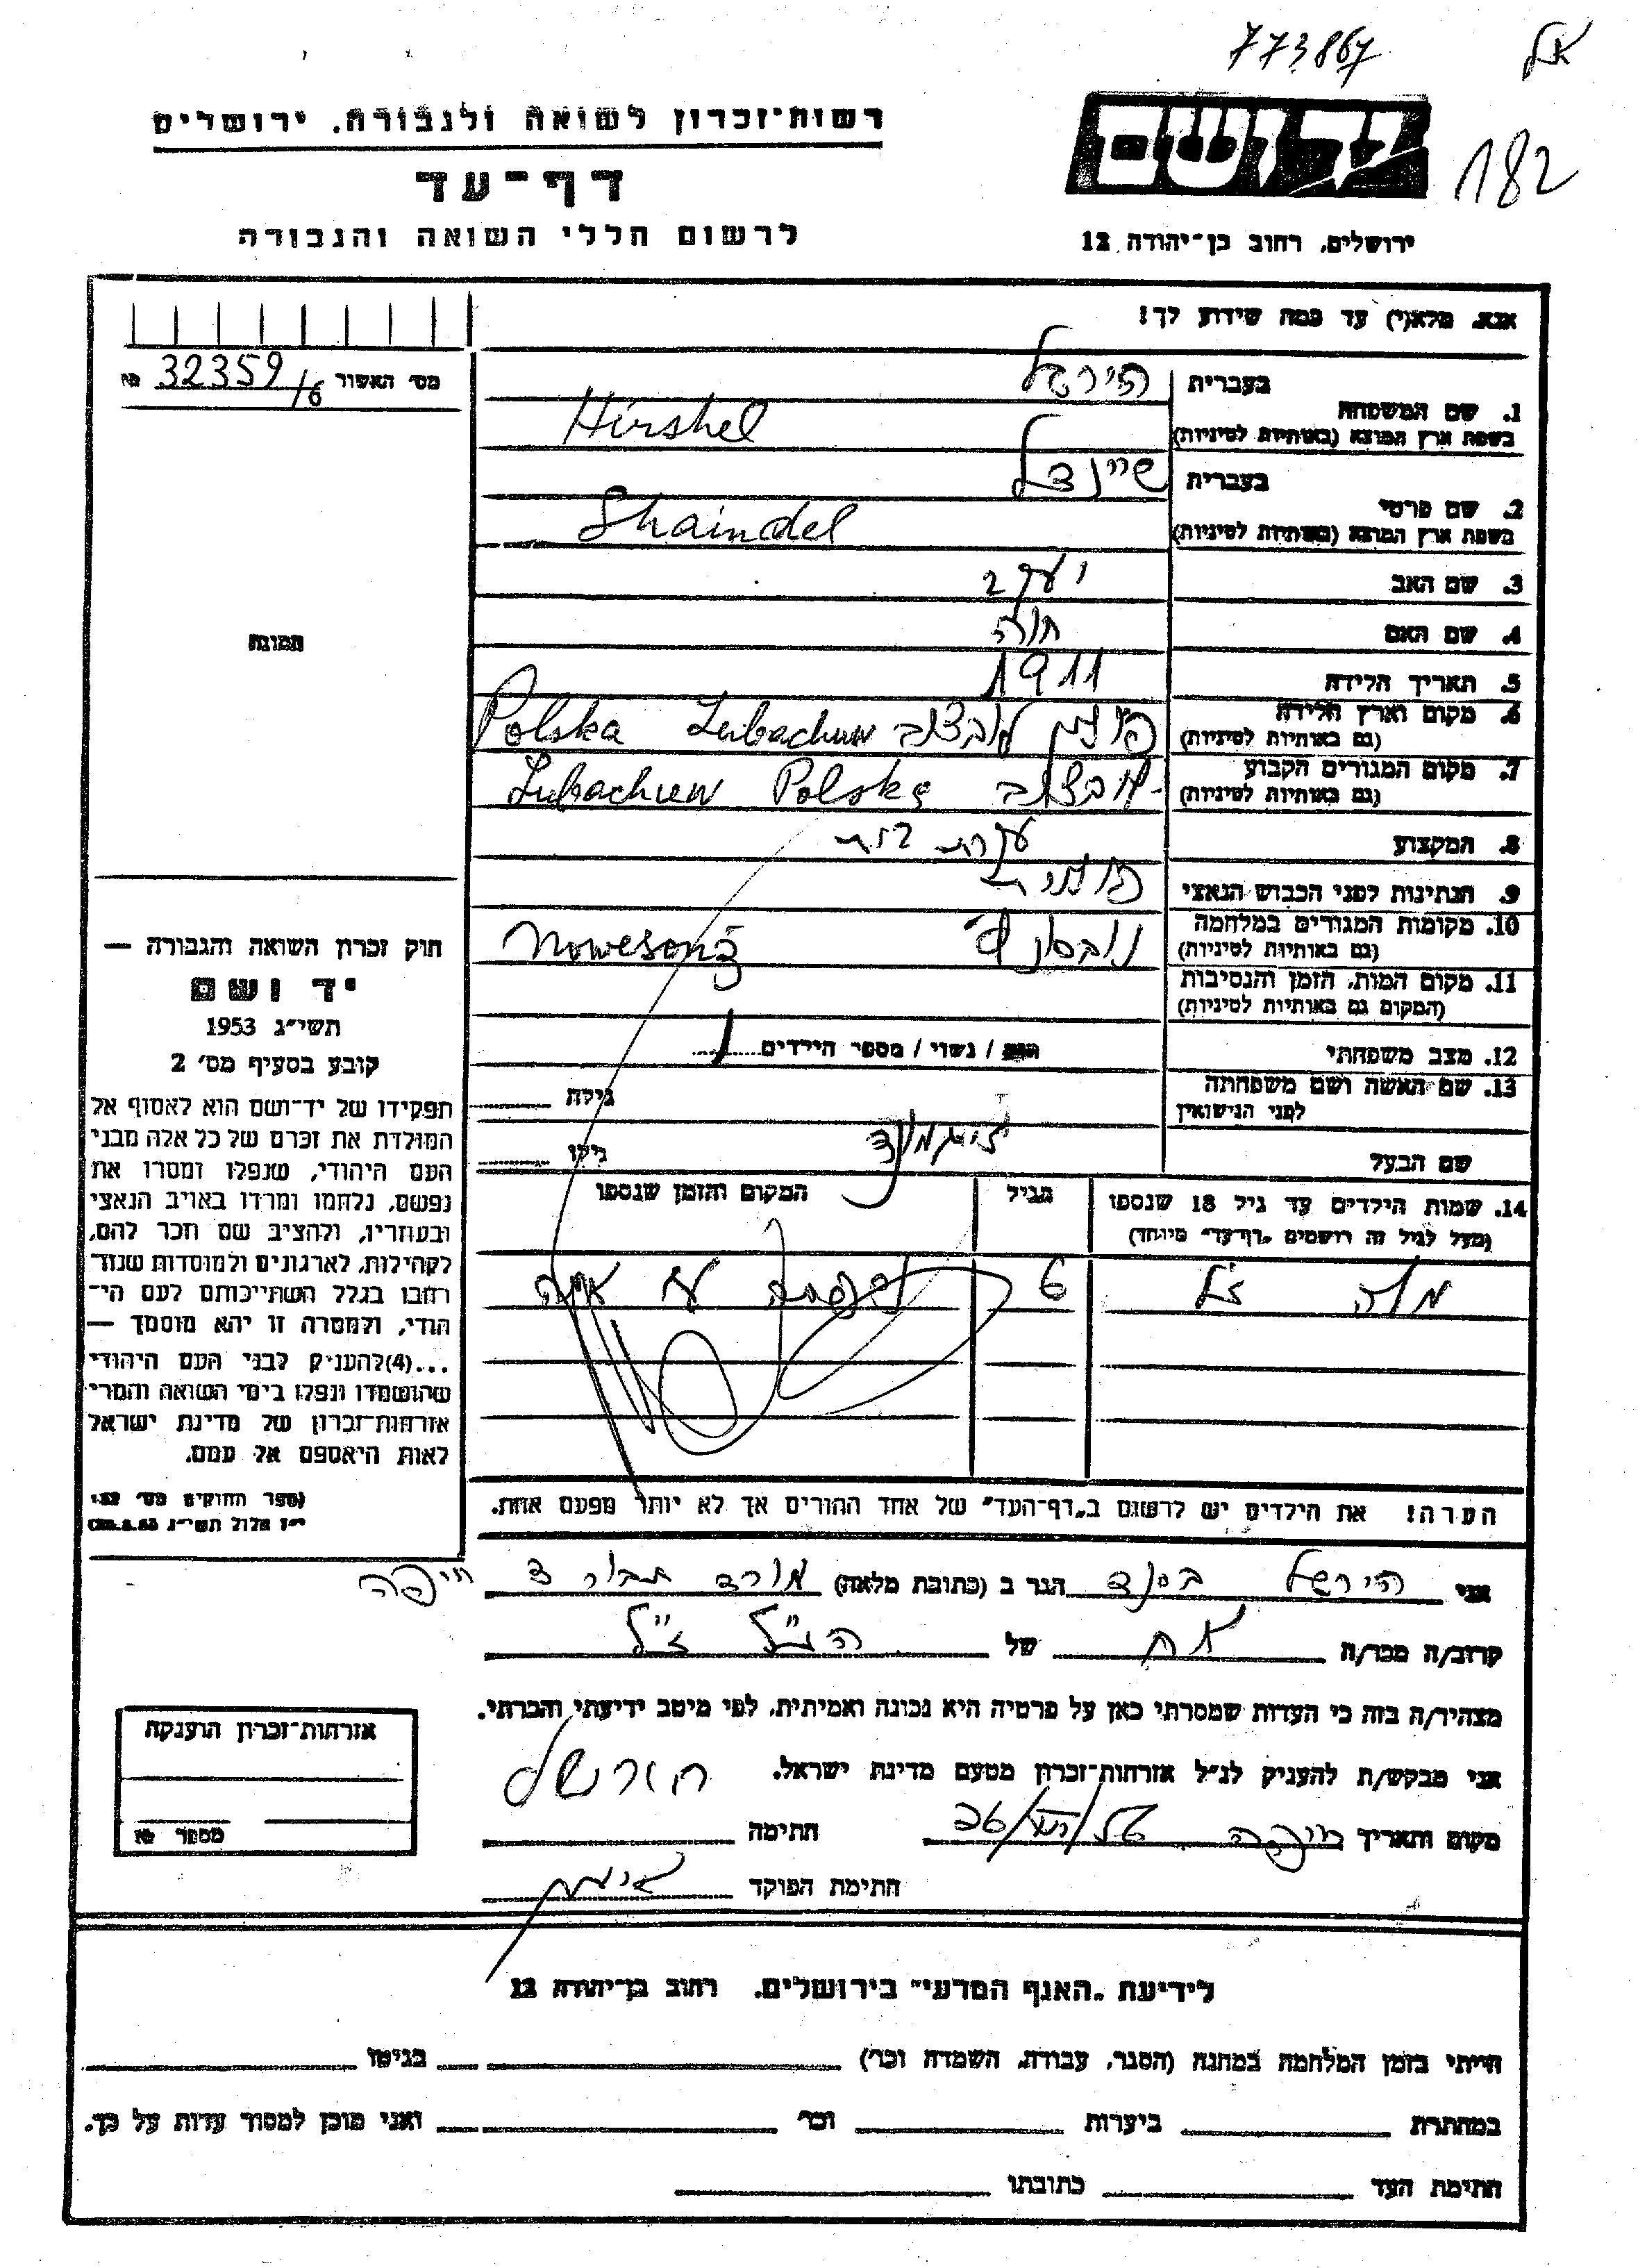 773867
182
רשות־זכרון לשואה ולגבורה, ירושלים
דף־עד
לרשום חללי השואה והגבורה
ירושלים, רחוב בן־יהודה 12
אנא, מלא(י) עד כמה שידוע לך!
מס׳ האשור 32359/6 №
1. שם המשפחה
בעברית הירשל
בשפת ארץ המוצא (באותיות לטיניות) Hirshel
2. שם פרטי
בעברית שיינדל
בשפת ארץ המוצא (באותיות לטיניות) Shaindel
3. שם האב יעקב
4. שם האם חוה
5. תאריך הלידה 1911
6. מקום וארץ הלידה
(גם באותיות לטיניות) פולין לובצוב Lubachuw Polska
7. מקום המגורים הקבוע
(גם באותיות לטיניות) לובצוב Lubachuw Polska
8. המקצוע עקרת בית
9. הנתינות לפני הכבוש הנאצי פולנית
10. מקומות המגורים במלחמה
(גם באותיות לטיניות)
11. מקום המות, הזמן והנסיבות
(המקום גם באותיות לטיניות)
12. מצב משפחתי / נשוי / מספר הילדים 1
13. שם האשה ושם משפחתה
לפני הנישואין
גילה
שם הבעל זיגמונד
גילו
14. שמות הילדים עד גיל 18 שנספו
(מעל לגיל זה רושמים „דף־עד״ מיוחד)
הגיל
המקום והזמן שנספו
ז״ל 6 נספתה עם אמה
הערה! את הילדים יש לרשום ב„דף־העד״ של אחד ההורים אך לא יותר מפעם אחת.
תמונה
חוק זכרון השואה והגבורה —
יד ושם
תשי״ג 1953
קובע בסעיף מס׳ 2
תפקידו של יד־ושם הוא לאסוף אל
המולדת את זכרם של כל אלה מבני
העם היהודי, שנפלו ומסרו את
נפשם, נלחמו ומרדו באויב הנאצי
ובעוזריו, ולהציב שם וזכר להם,
לקהילות, לארגונים ולמוסדות שנח־
רבו בגלל השתייכותם לעם הי־
הודי, ולמטרה זו יהא מוסמך —
...(4) להעניק לבני העם היהודי
שהושמדו ונפלו בימי השואה והמרי
אזרחות־זכרון של מדינת ישראל
לאות היאספם אל עמם.
(ספר החוקים מס׳ 132,
י״ז אלול תשי״ג 28.8.53)
אני הירשל הגר ב (כתובת מלאה) מורד חיפה
קרוב/ה מכר/ה אח של הנ״ל ז״ל
מצהיר/ה בזה כי העדות שמסרתי כאן על פרטיה היא נכונה ואמיתית, לפי מיטב ידיעתי והכרתי.
אני מבקש/ת להעניק לנ״ל אזרחות־זכרון מטעם מדינת ישראל.
מקום ותאריך חיפה חתימה הירשל
חתימת הפוקד
אזרחות־זכרון הוענקה
מספר №
לידיעת „האגף המדעי״ בירושלים, רחוב בן־יהודה 12
הייתי בזמן המלחמה במחנה (הסגר, עבודה, השמדה וכו׳) בגיטו
במחתרת ביערות וכו׳ ואני מוכן למסור עדות על כך.
חתימת העד כתובתו